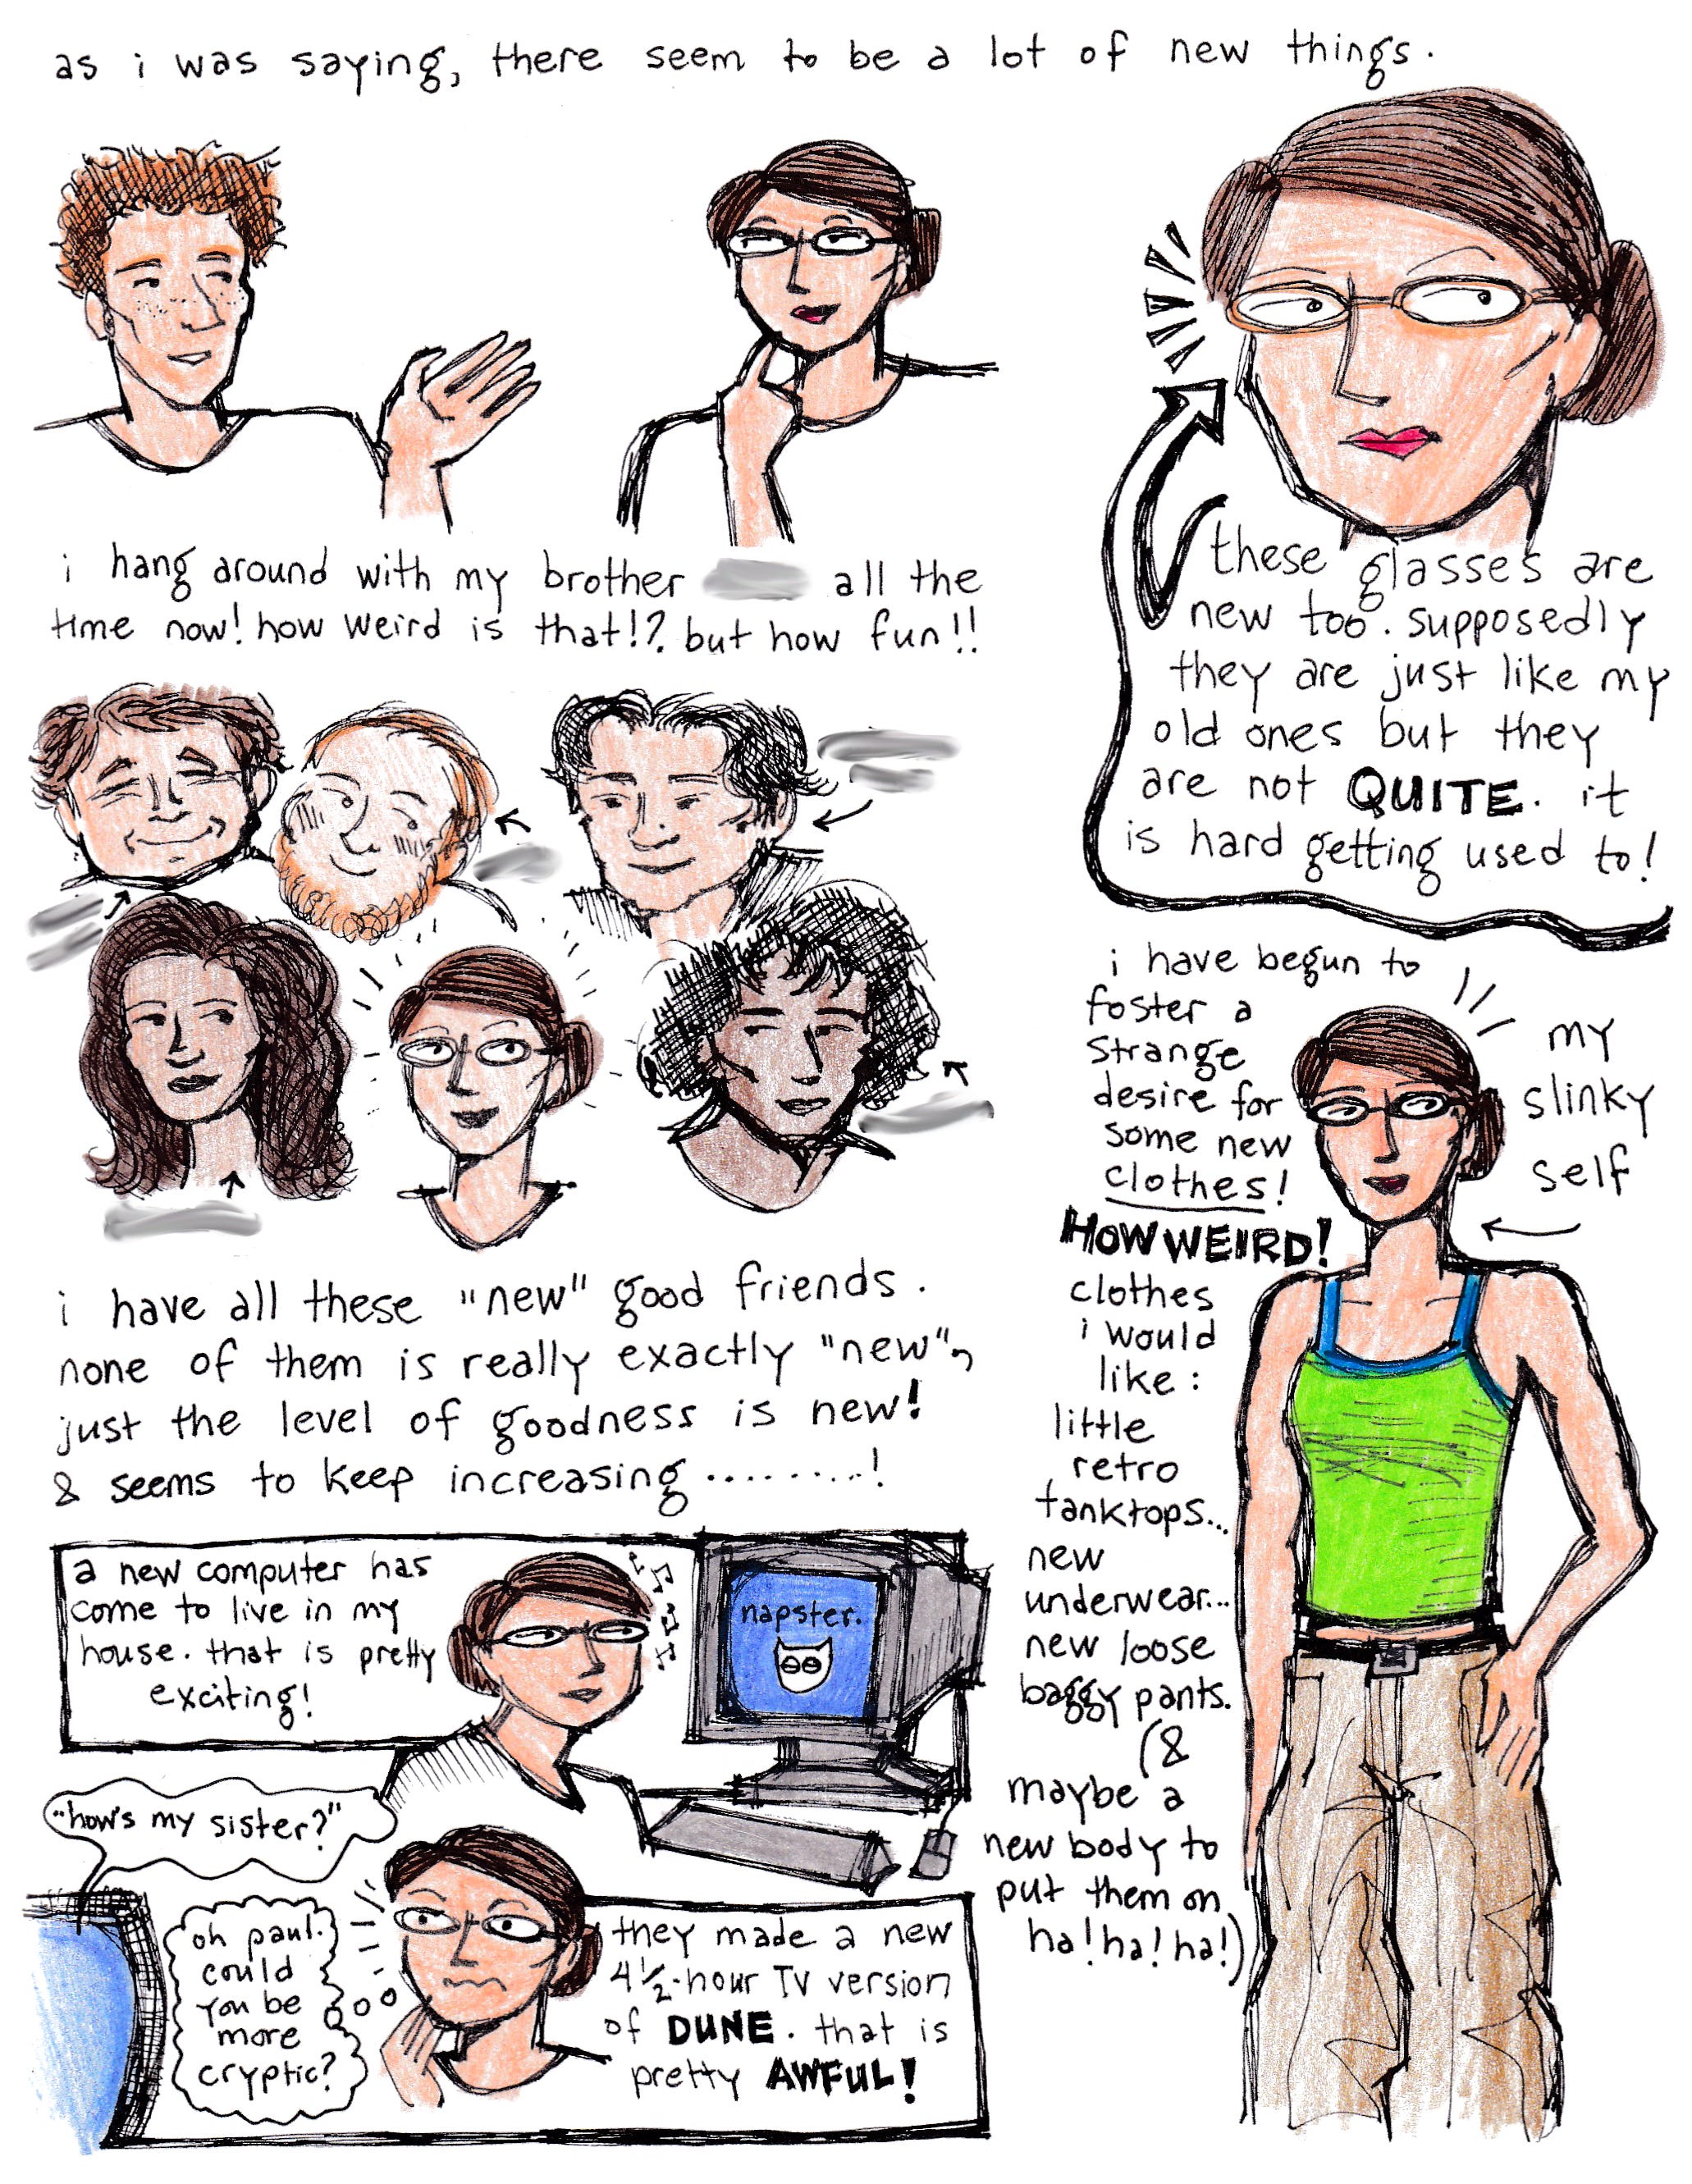 as i was saying, there seem to be a lot of new things.
i hang around with my brother all the
time now! how weird is that!? but how fun!!
these glasses are
new too. supposedly
they are just like my
old ones but they
are not QUITE. it
is hard getting used to!
i have all these "new" good friends.
none of them is really exactly "new",
just the level of goodness is new!
& seems to keep increasing ........!
i have begun to
foster a
strange
desire for
some new
clothes!
HOW WEIRD!
clothes
i would
like:
little
retro
tanktops...
new
underwear...
new loose
baggy pants.
(&
maybe a
new body to
put them on
ha! ha! ha!)
my
slinky
self
a new computer has
come to live in my
house. that is pretty
exciting!
napster.
"how's my sister?"
oh paul.
could
you be
more
cryptic?
they made a new
4½-hour TV version
of DUNE. that is
pretty AWFUL!